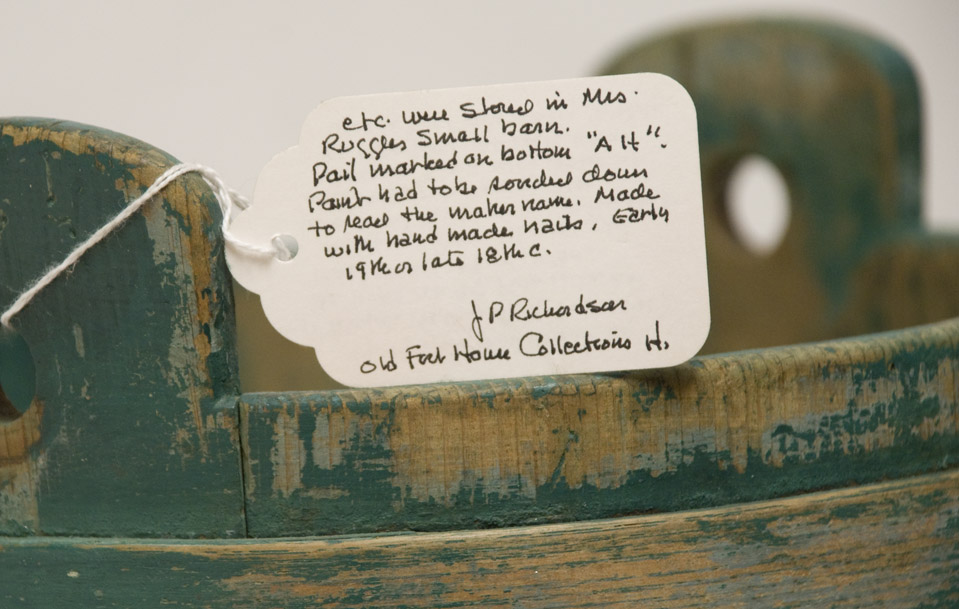 etc. were stored in Mrs.
Ruggles Small barn.
Pail marked on bottom "A H".
Paint had to be sanded down
to read the maker name. Made
with hand made nails, Early
19th or late 18th c.
J P Richardson
Old Fort House Collections H.